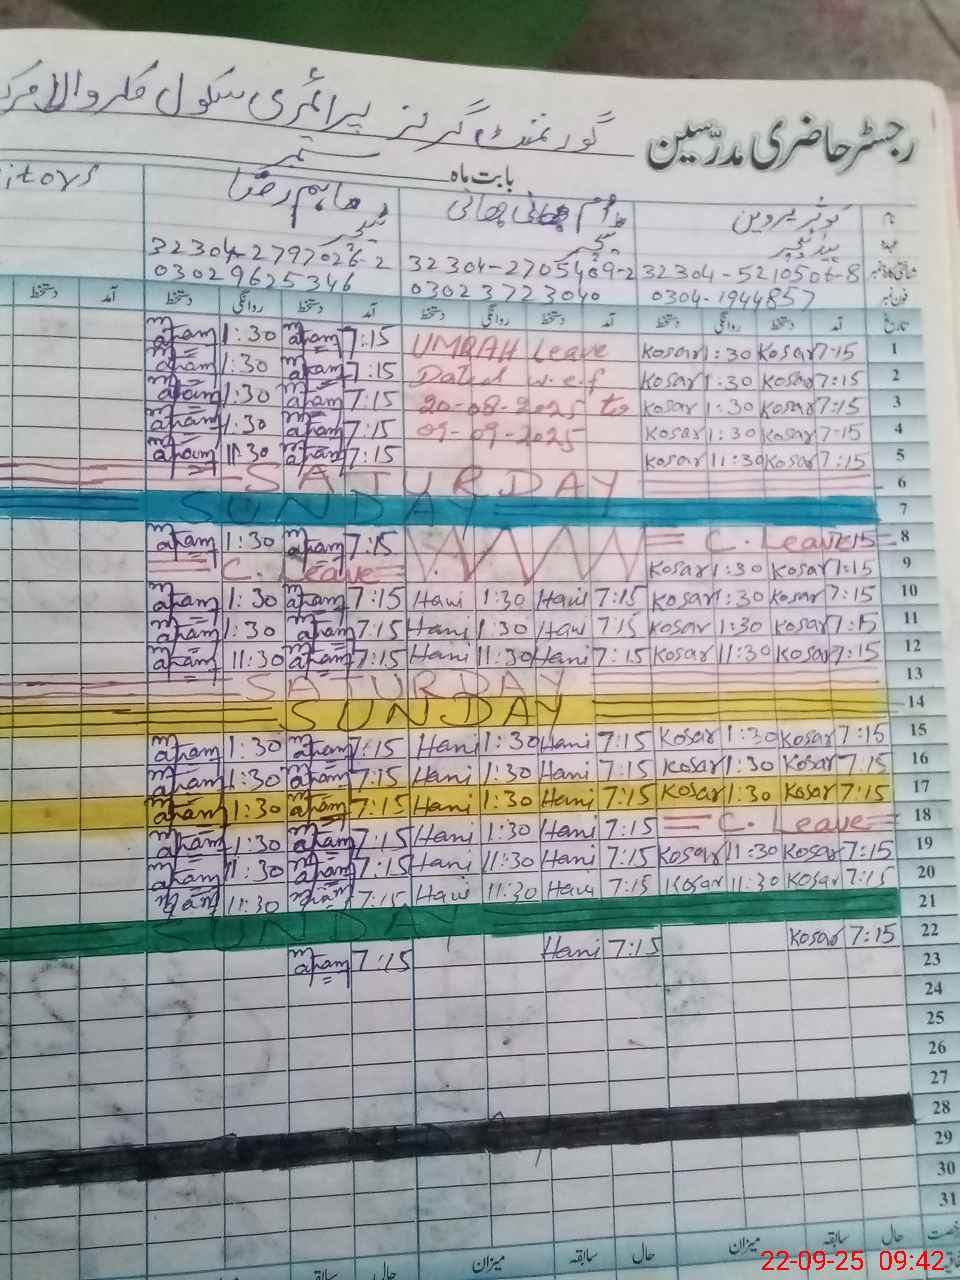 رجسٹر حاضری مدرّسین
گورنمنٹ گرلز پرائمری سکول
بابت ماہ ستمبر
نام کوثر پروین ماہم رضا itors
ٹیچر
شناختی کارڈ نمبر 32304-5210506-8 32304-2705469-2 32304-2797026-2
فون نمبر 0304-1944857 03023723040 03029625346
تاریخ آمد دستخط روانگی دستخط آمد دستخط روانگی دستخط آمد دستخط روانگی دستخط آمد دستخط
1 7:15 Kosar 1:30 Kosar UMRAH Leave 7:15 Maham 1:30 Maham
2 7:15 Kosar 1:30 Kosar Dated w.e.f 7:15 Maham 1:30 Maham
3 7:15 Kosar 1:30 Kosar 20-08-2025 to 7:15 Maham 1:30 Maham
4 7:15 Kosar 1:30 Kosar 09-09-2025 7:15 Maham 1:30 Maham
5 7:15 Kosar 11:30 Kosar 7:15 Maham 11:30 Maham
6 SATURDAY
7 SUNDAY
8 C. Leave 7:15 Maham 1:30 Maham
9 7:15 Kosar 1:30 Kosar C. Leave
10 7:15 Kosar 1:30 Kosar 7:15 Hani 1:30 Hani 7:15 Maham 1:30 Maham
11 7:15 Kosar 1:30 Kosar 7:15 Hani 1:30 Hani 7:15 Maham 1:30 Maham
12 7:15 Kosar 11:30 Kosar 7:15 Hani 11:30 Hani 7:15 Maham 11:30 Maham
13 SATURDAY
14 SUNDAY
15 7:15 Kosar 1:30 Kosar 7:15 Hani 1:30 Hani 7:15 Maham 1:30 Maham
16 7:15 Kosar 1:30 Kosar 7:15 Hani 1:30 Hani 7:15 Maham 1:30 Maham
17 7:15 Kosar 1:30 Kosar 7:15 Hani 1:30 Hani 7:15 Maham 1:30 Maham
18 C. Leave 7:15 Hani 1:30 Hani 7:15 Maham 1:30 Maham
19 7:15 Kosar 11:30 Kosar 7:15 Hani 11:30 Hani 7:15 Maham 11:30 Maham
20 7:15 Kosar 11:30 Kosar 7:15 Hani 11:30 Hani 7:15 Maham 11:30 Maham
21 SUNDAY
22 7:15 Kosar 7:15 Hani 7:15 Maham
23
24
25
26
27
28
29
30
31
رخصت حال سابقہ میزان حال سابقہ میزان حال سابقہ
22-09-25 09:42